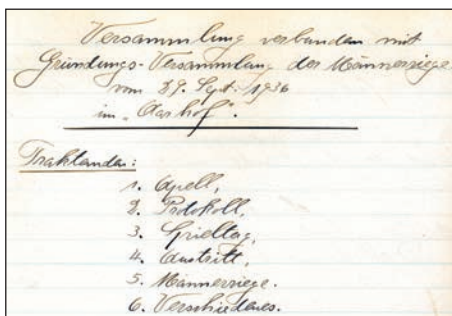 Versammlung verbunden mit
Gründungs-Versammlung der Männerriege
vom 29. Sept. 1936
im „Aarhof".
Traktanden:
1. Apell,
2. Protokoll,
3. Spieltag,
4. Austritt,
5. Männerriege.
6. Verschiedenes.